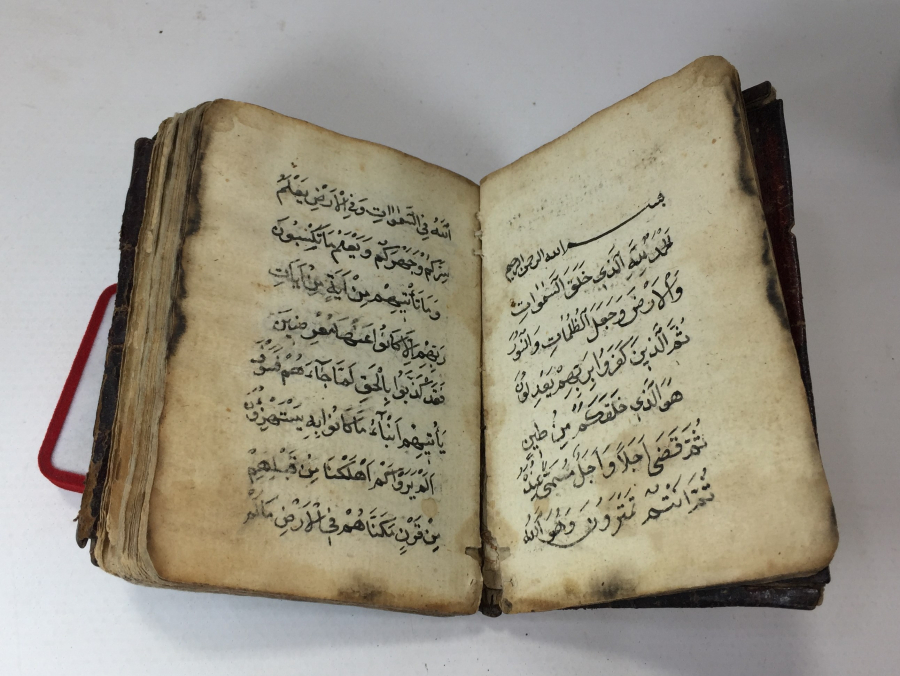 بسم الله الرحمن الرحيم
الحمد لله الذي خلق السموات
والارض وجعل الظلمات والنور
ثم الذين كفروا بربهم يعدلون
هو الذي خلقكم من طين
ثم قضى اجلا واجل مسمى عنده
ثم انتم تمترون وهو الله
الله في السموات وفي الارض يعلم
سركم وجهركم ويعلم ما تكسبون
وما تأتيهم من اية من ايات
ربهم الا كانوا عنها معرضين
فقد كذبوا بالحق لما جاءهم فسوف
يأتيهم انباء ما كانوا به يستهزؤن
الم يروا كم اهلكنا من قبلهم
من قرن مكناهم في الارض ما لم